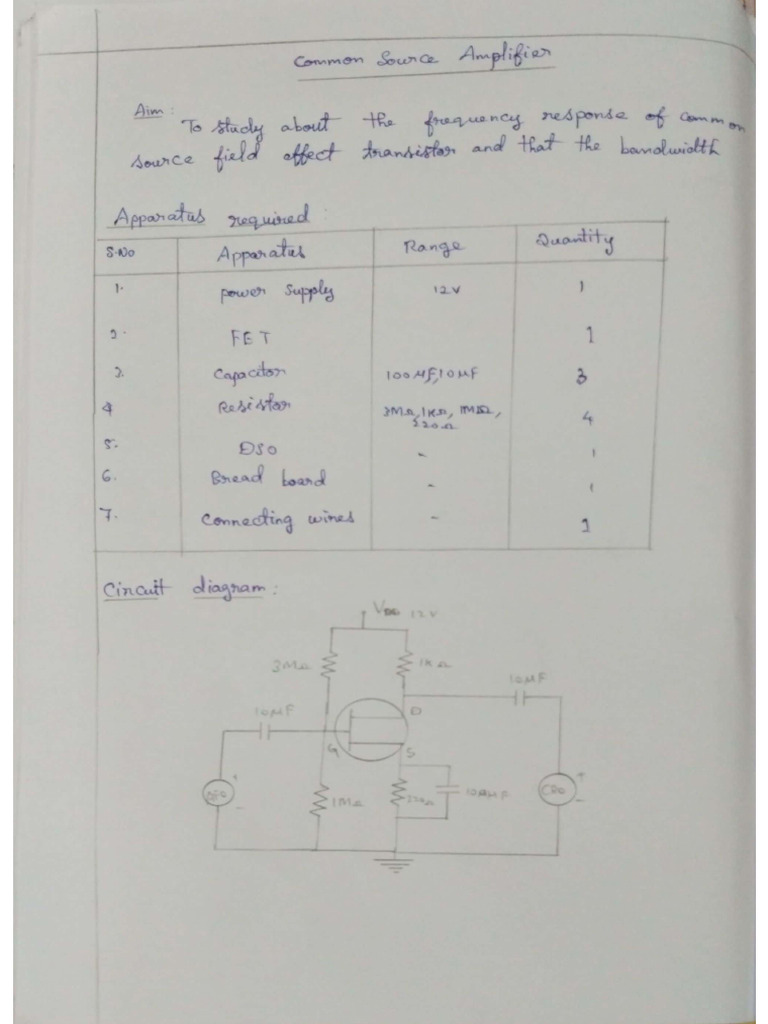 Common Source Amplifier
Aim :
To study about the frequency response of common
source field effect transistor and that the bandwidth
Apparatus required :
S.No Apparatus Range Quantity
1. power supply 12V 1
2. FET 1
3. Capacitor 100μF, 10μF 3
4 Resistor 3MΩ, 1KΩ, 1MΩ, 4
220Ω
5. DSO - 1
6. Bread board - 1
7. Connecting wires - 1
Circuit diagram :
VDD 12V
3MΩ 1KΩ
10μF
10μF D
G S
AFO + CRO +
1MΩ 220Ω 100μF
- -